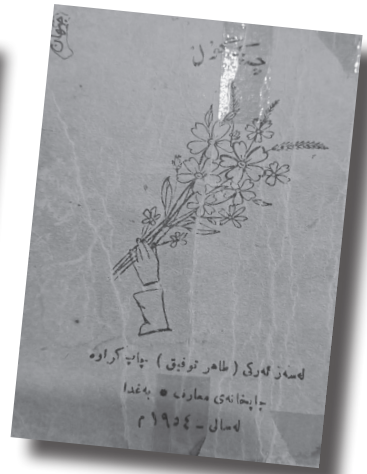 لەسەر ئەرکی ( طاهر توفیق ) چاپ کراوە
چاپخانەی معارف • بەغدا
لەسالی - ١٩٥٤ م